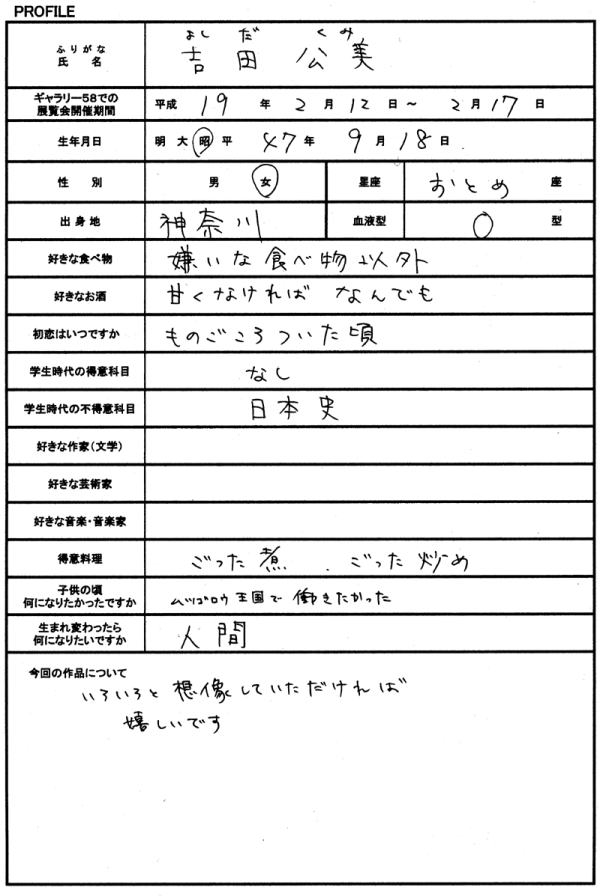 PROFILE
よしだ くみ
ふりがな
氏名 吉田 公美
ギャラリー58での
展覧会開催期間 平成 19 年 2 月 12 日～ 2 月 17 日
生年月日 明 大 昭 平 47 年 9 月 18 日
性別 男 女 星座 おとめ 座
出身地 神奈川 血液型 O 型
好きな食べ物 嫌いな食べ物以外
好きなお酒 甘くなければ なんでも
初恋はいつですか ものごころついた頃
学生時代の得意科目 なし
学生時代の不得意科目 日本史
好きな作家（文学）
好きな芸術家
好きな音楽・音楽家
得意料理 ごった煮．ごった炒め
子供の頃
何になりたかったですか ムツゴロウ王国で働きたかった
生まれ変わったら
何になりたいですか 人間
今回の作品について
いろいろと想像していただければ
嬉しいです